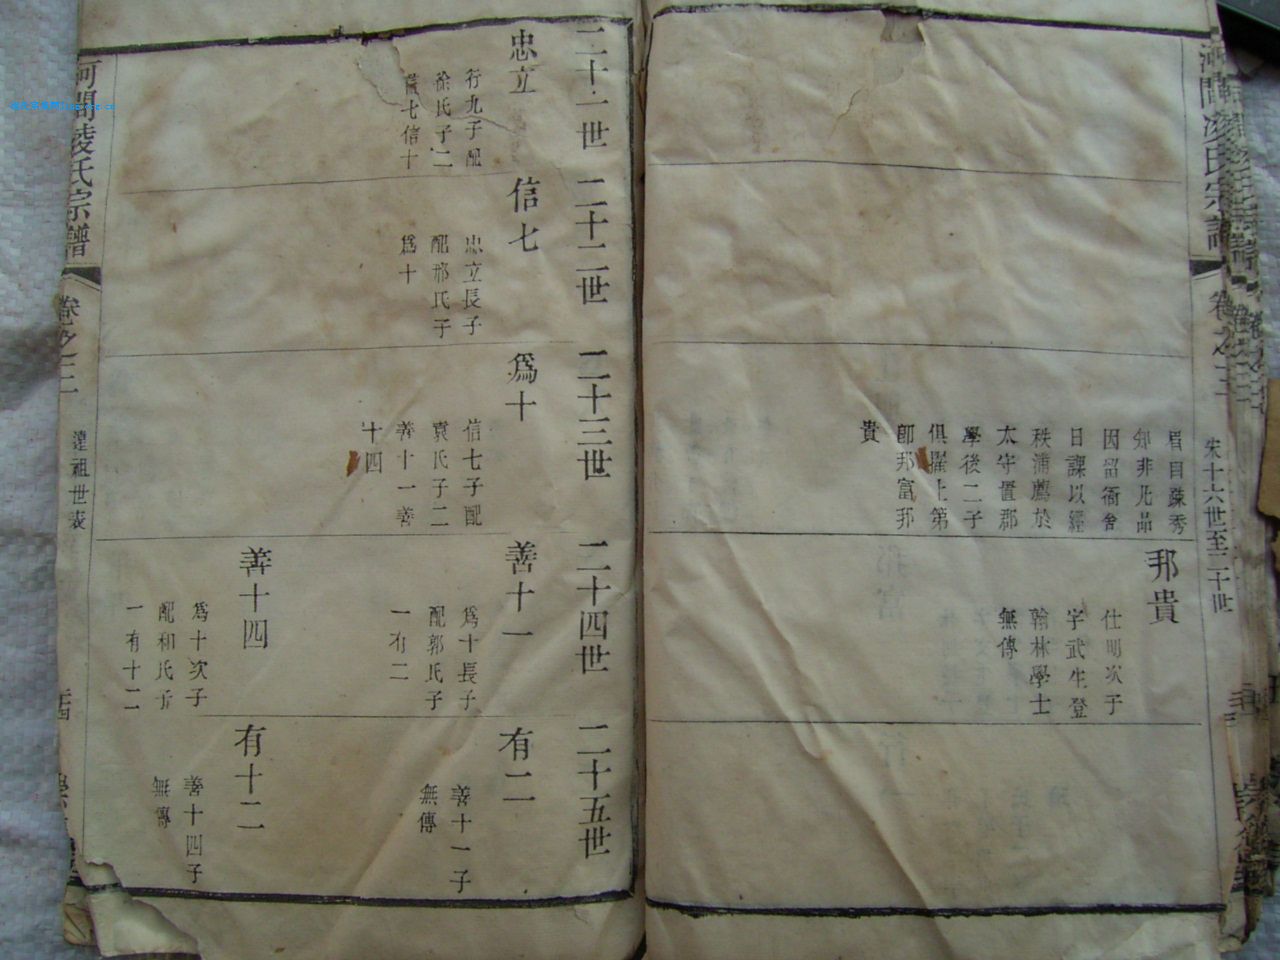 河間凌氏宗譜
卷之二
宋十六世至二十世
眉目踈秀
知非凡品
因留衙舍
日課以經
秩浦薦於
太守置郡
學後二子
俱擢上第
卽邦富邦
貴
邦貴
仕明次子
字武生登
翰林學士
無傳
二十一世
忠立
行九子配
徐氏子二
信七信十
二十二世
信七
忠立長子
配邢氏子
爲十
二十三世
爲十
信七子配
袁氏子二
善十一善
十四
二十四世
善十一
爲十長子
配郭氏子
一有二
善十四
爲十次子
配和氏子
一有十二
二十五世
有二
善十一子
無傳
有十二
善十四子
無傳
河間凌氏宗譜
卷之二
遠祖世表